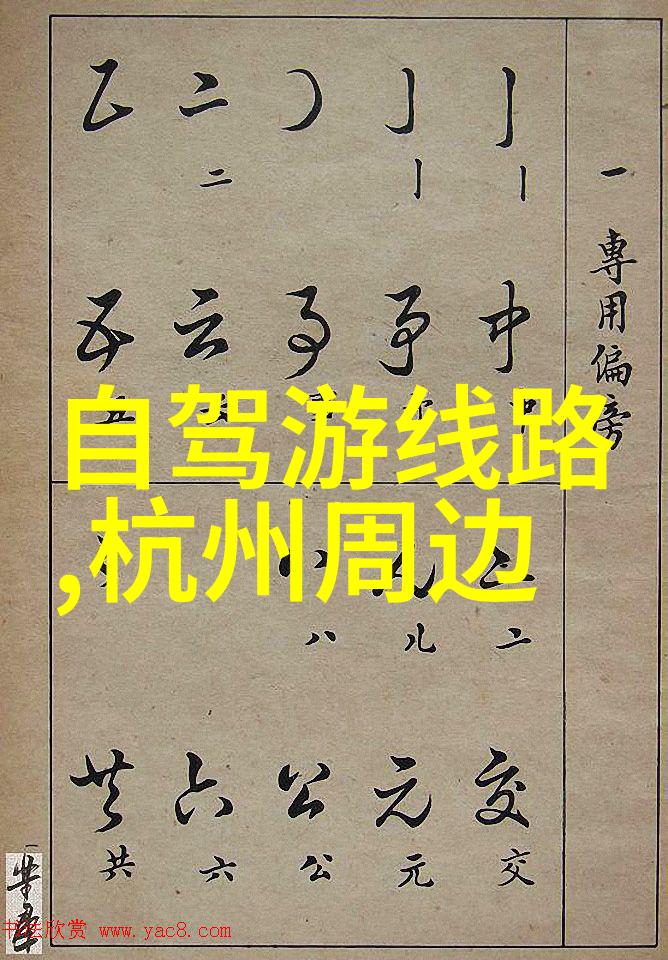 自驾游线路
,杭州周边
一 專用偏旁
丨 中 中
丨 争
事
二 二 云
五 五
二 交 交
儿 元 元
八 八 公 公
六 六
共 共
书法欣赏 www.yac8.com